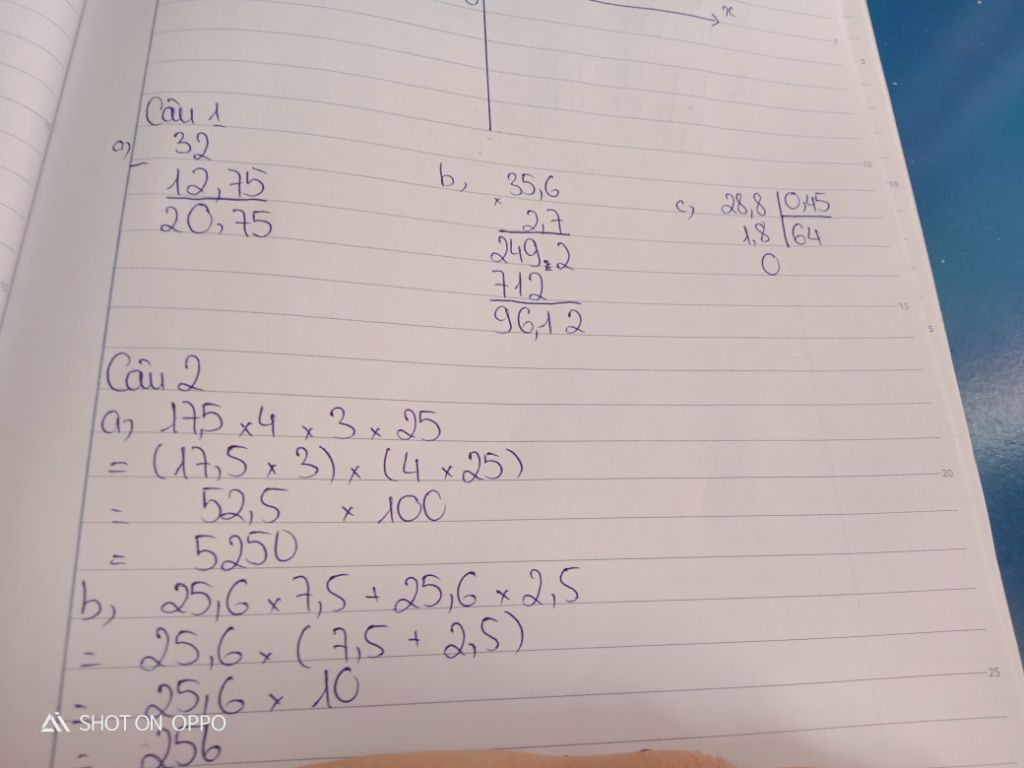 x
Câu 1
a)
32
-
12,75
20,75
b,
35,6
x
2,7
249,2
712
96,12
c,
28,8 | 0,45
1,8 | 64
0
Câu 2
a, 17,5 x 4 x 3 x 25
= (17,5 x 3) x (4 x 25)
= 52,5 x 100
= 5250
b, 25,6 x 7,5 + 25,6 x 2,5
= 25,6 x (7,5 + 2,5)
= 25,6 x 10
= 256
SHOT ON OPPO
5
5
10
10
15
5
20
25